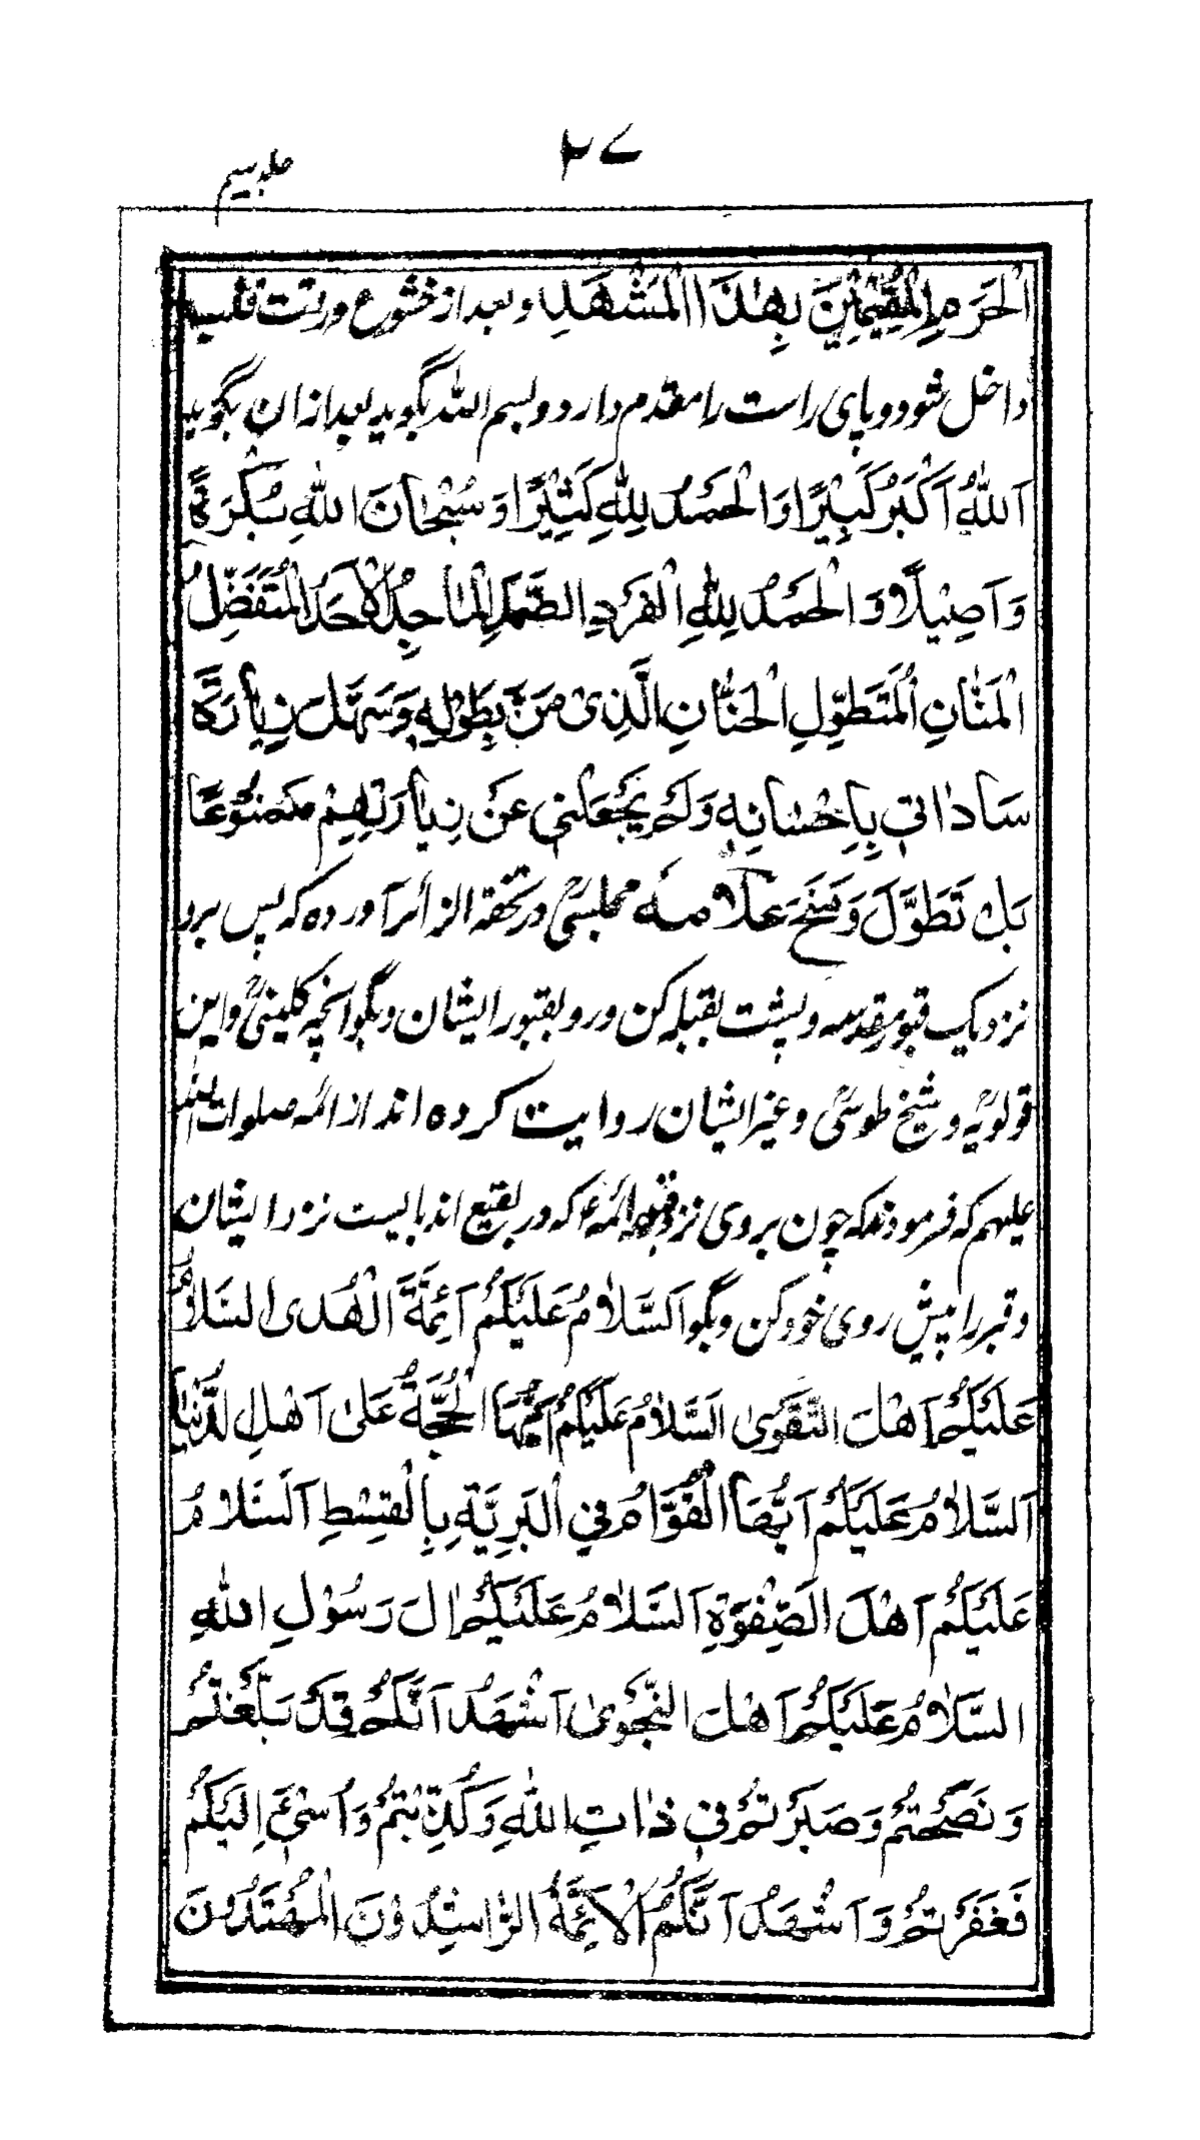 ٢٧
جلد بیم
الْحَرَمِ الْمُقِیْمِیْنَ بِهٰذَا الْمَشْهَدِ و بعد از خشوع و رقت قلب
داخل شود و پای راست را مقدم دارد و بسم الله بگوید بعد از ان بگوید
اَللّٰهُ اَكْبَرُ كَبِیْرًا وَ الْحَمْدُ لِلّٰهِ كَثِیْرًا وَ سُبْحَانَ اللّٰهِ بُكْرَةً
وَ اَصِیْلًا وَ الْحَمْدُ لِلّٰهِ الْفَرْدِ الصَّمَدِ الْمَاجِدِ الْاَحَدِ الْمُتَفَضِّلِ
الْمَنَّانِ الْمُتَطَوِّلِ الْحَنَّانِ الَّذِیْ مَنَّ بِطَوْلِهٖ وَ سَهَّلَ زِیَارَةَ
سَادَاتِیْ بِاِحْسَانِهٖ وَ لَمْ یَجْعَلْنِیْ عَنْ زِیَارَتِهِمْ مَمْنُوْعًا
بَلْ تَطَوَّلَ وَ مَنَحَ علامه مجلسیؒ در تحفة الزائر آورده که پس برد
نزدیک قبور مقدسه و پشت بقبله کن و رو بقبور ایشان و بگو انچه کلینیؒ و ابن
قولویهؒ و شیخ طوسیؒ و غیر ایشان روایت کرده اند از ائمه صلوات الله
علیهم که فرمودند که چون بروی نزد ائمهؑ که در بقیع اند بایست نزد ایشان
و قبر را پیش روی خود کن و بگو اَلسَّلَامُ عَلَیْكُمْ اَئِمَّةَ الْهُدٰى السَّلَامُ
عَلَیْكُمْ اَهْلَ التَّقْوٰى اَلسَّلَامُ عَلَیْكُمْ اَیُّهَا الْحُجَّةُ عَلٰى اَهْلِ الدُّنْیَا
اَلسَّلَامُ عَلَیْكُمْ اَیُّهَا الْقُوَّامُ فِی الْبَرِیَّةِ بِالْقِسْطِ اَلسَّلَامُ
عَلَیْكُمْ اَهْلَ الصَّفْوَةِ اَلسَّلَامُ عَلَیْكُمْ اٰلَ رَسُوْلِ اللّٰهِ
السَّلَامُ عَلَیْكُمْ اَهْلَ النَّجْوٰى اَشْهَدُ اَنَّكُمْ قَدْ بَلَّغْتُمْ
وَ نَصَحْتُمْ وَ صَبَرْتُمْ فِیْ ذَاتِ اللّٰهِ وَ كُذِّبْتُمْ وَ اُسِیْءَ اِلَیْكُمْ
فَغَفَرْتُمْ وَ اَشْهَدُ اَنَّكُمُ الْاَئِمَّةُ الرَّاشِدُوْنَ الْمُهْتَدُوْنَ